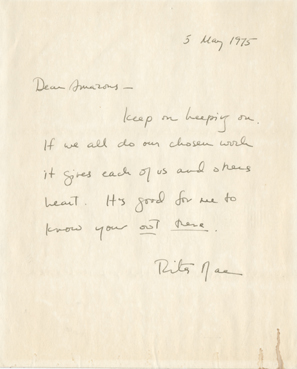 5 May 1975
Dear Amazons –
Keep on keeping on.
If we all do our chosen work
it gives each of us and others
heart. It's good for me to
know your out there.
Rita Mae